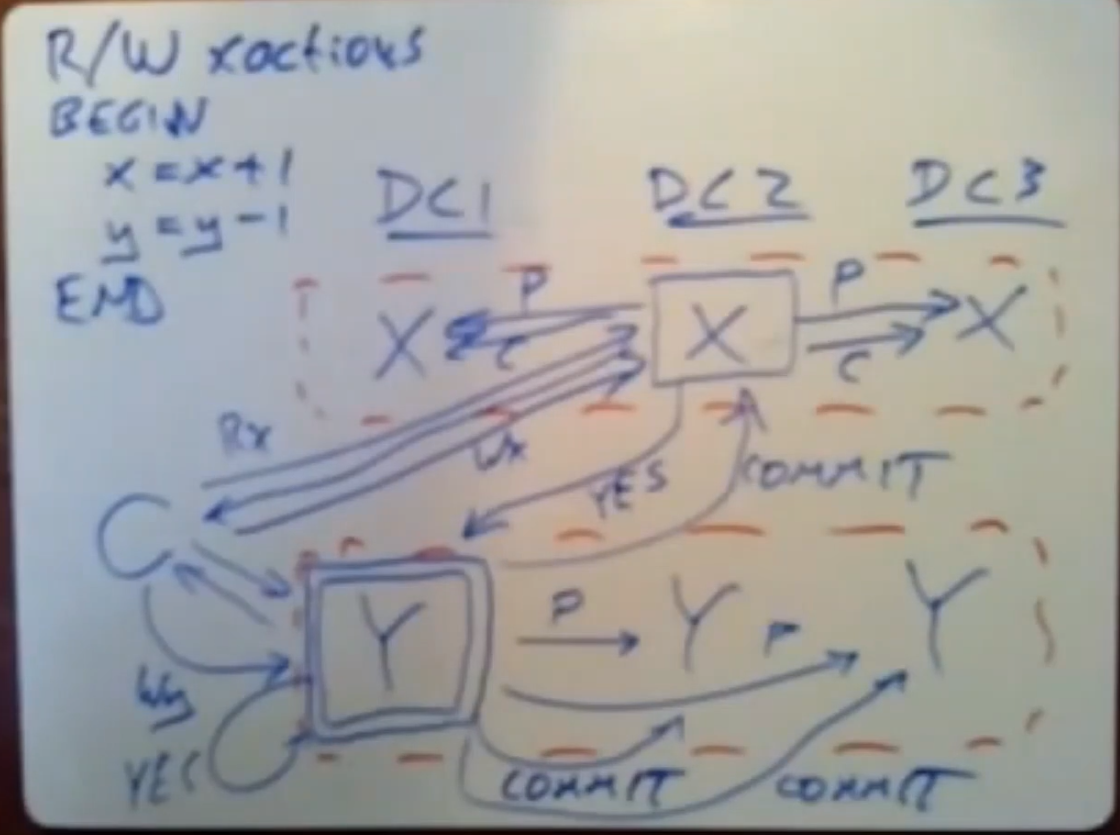 R/W xactions
BEGIN
x = x + 1
y = y - 1
END
DC1 DC2 DC3
P P
X X X
C C
Rx
Wx
YES
COMMIT
C
Y Y Y
P P
Wy
YES
COMMIT COMMIT